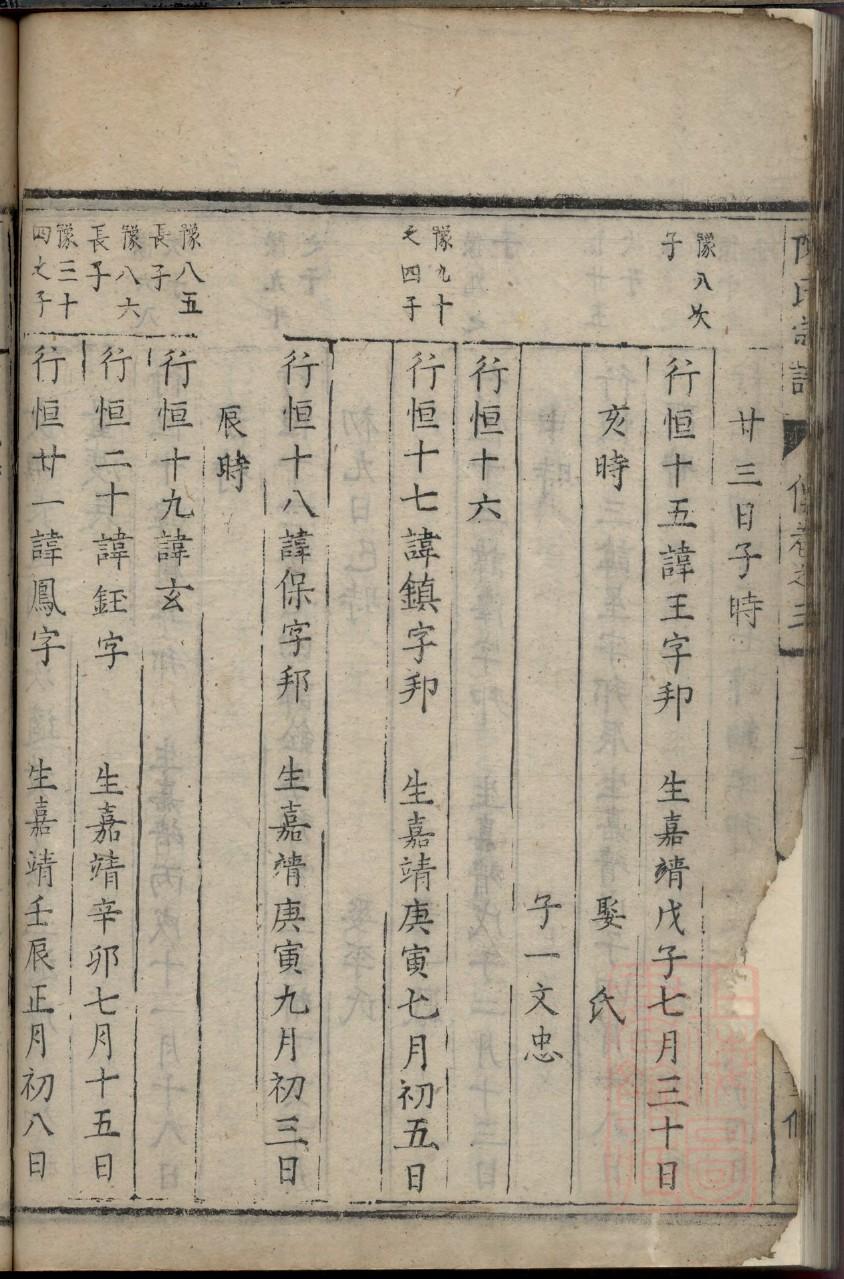 廿三日子時
豫八次
子
行恒十五諱王字邦 生嘉靖戊子七月三十日
亥時 娶 氏
子一文忠
行恒十六
豫九十
之四子
行恒十七諱鎮字邦 生嘉靖庚寅七月初五日
行恒十八諱保字邦 生嘉靖庚寅九月初三日
辰時
豫八五
長子
行恒十九諱玄
豫八六
長子
行恒二十諱鈺字 生嘉靖辛卯七月十五日
豫三十
四之子
行恒廿一諱鳳字 生嘉靖壬辰正月初八日